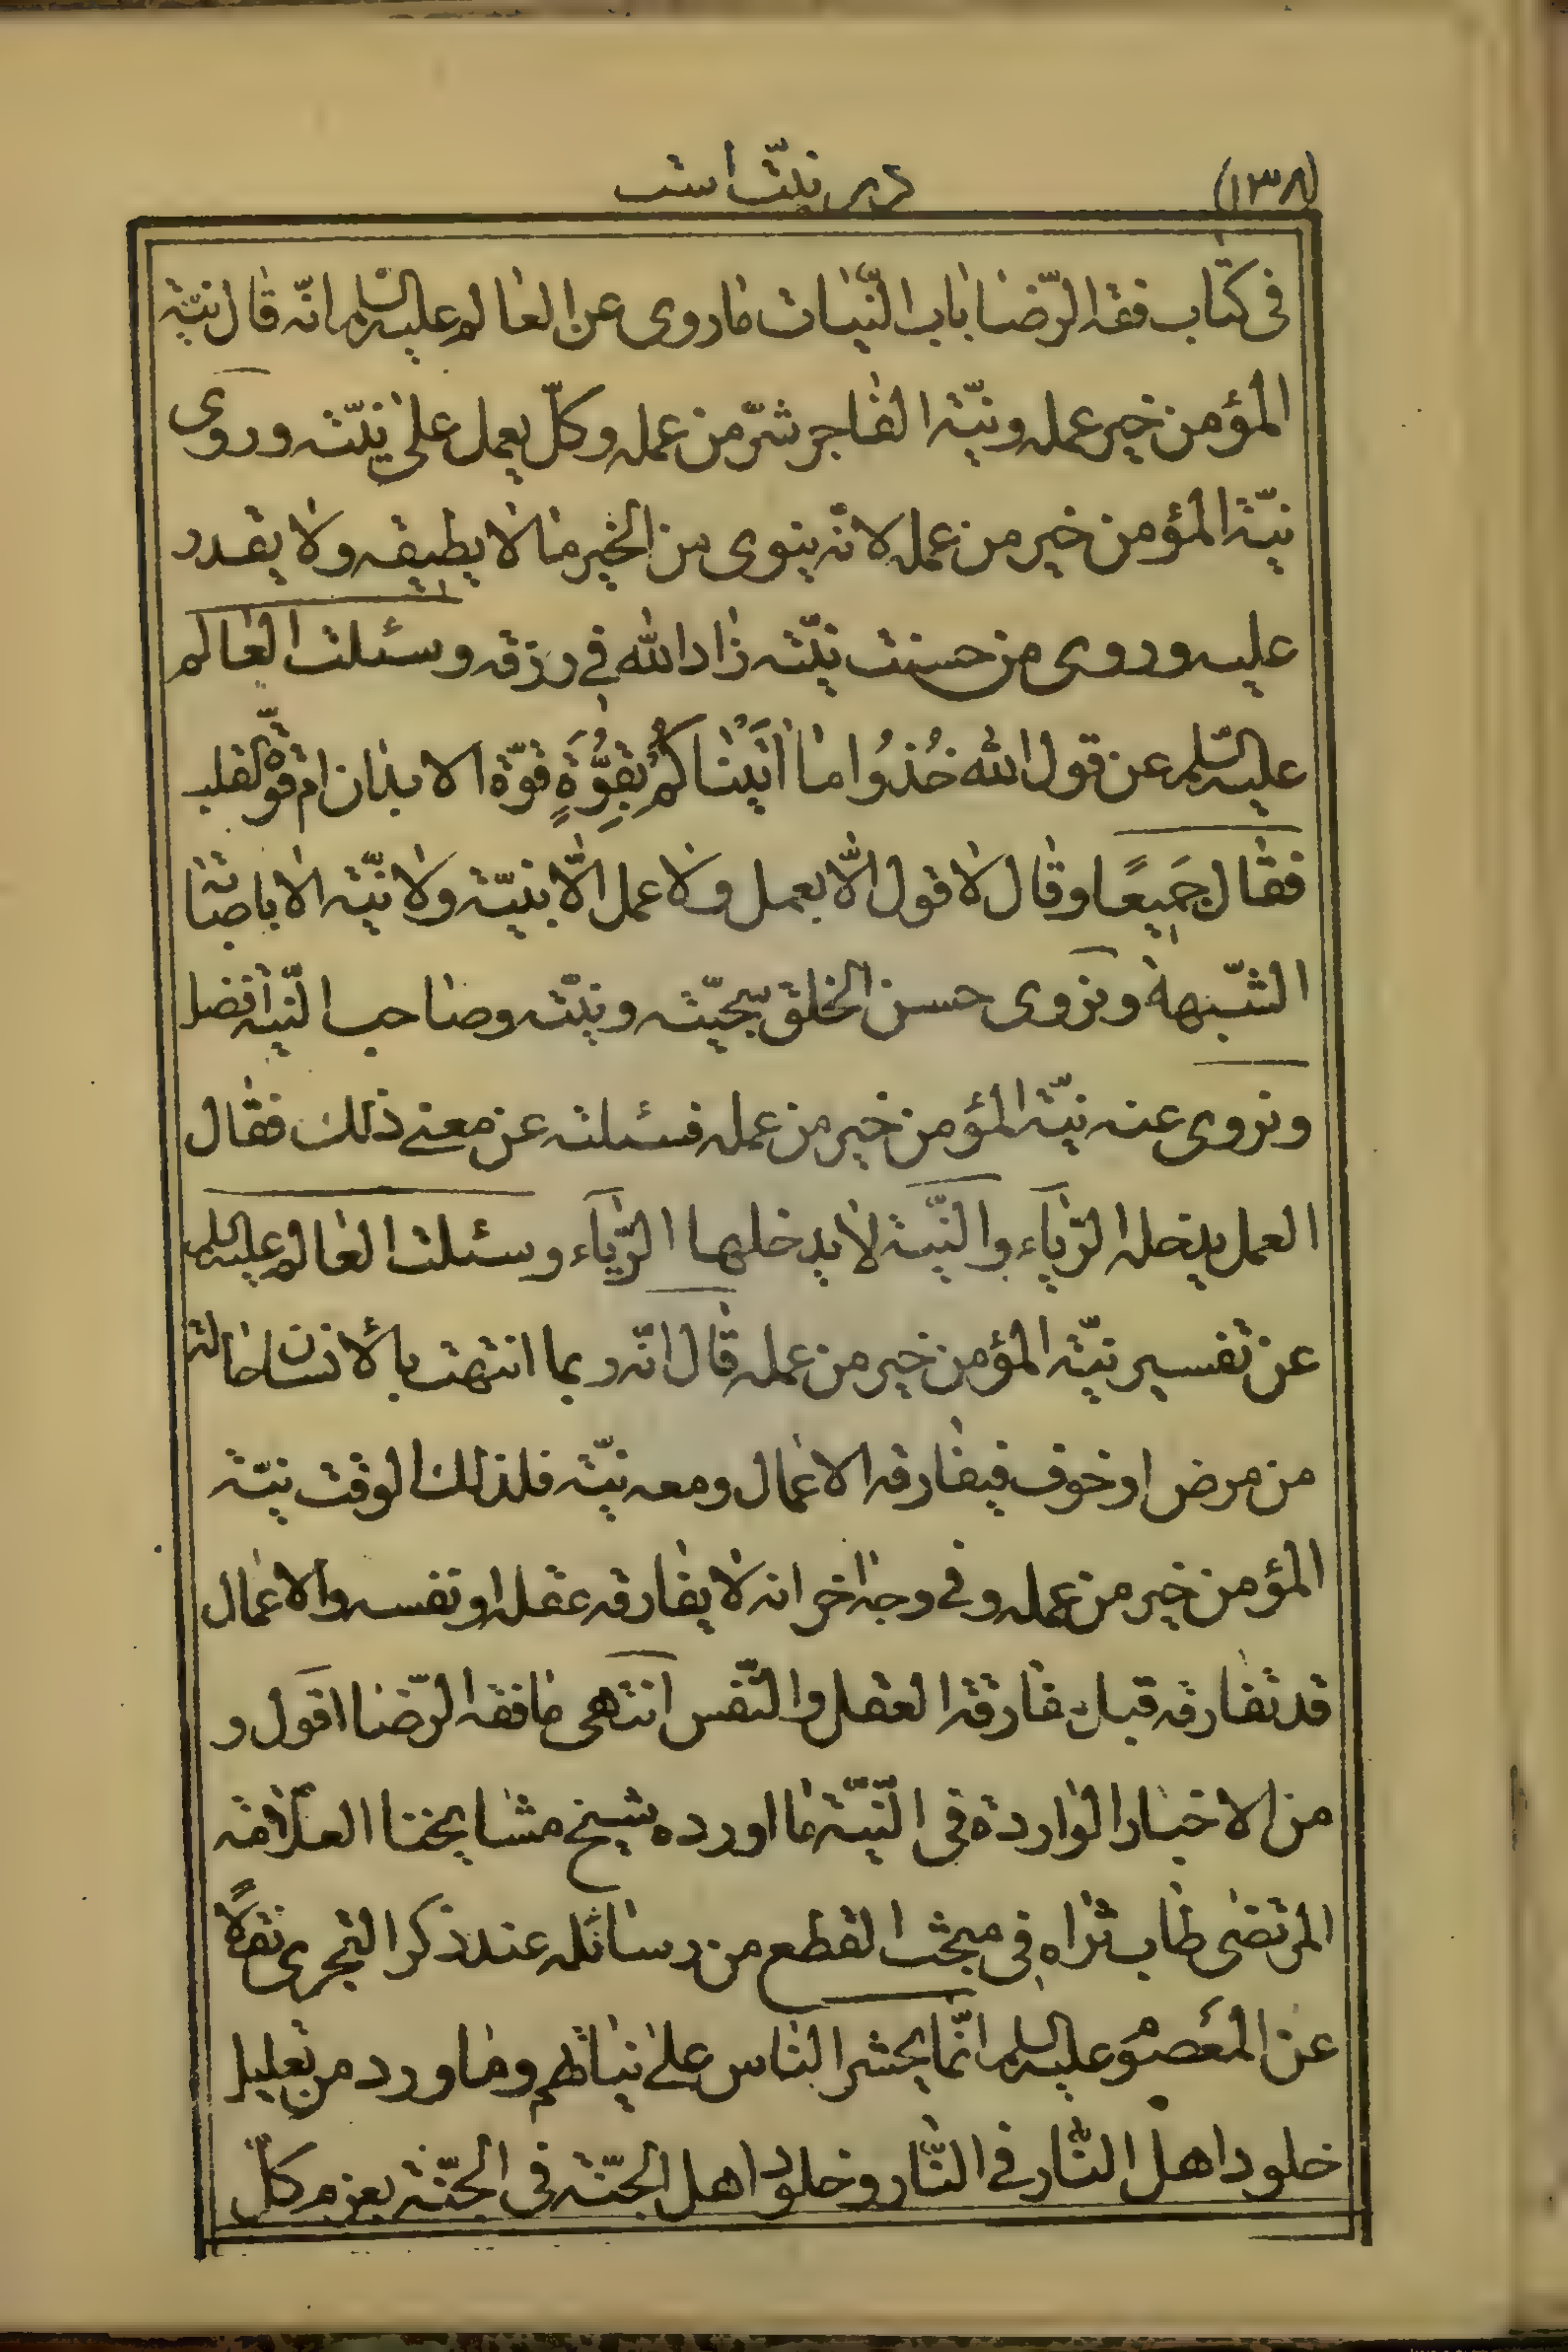 (۱۳۸)
در نیّت است
فی کتاب فقه الرّضا باب النّیّات ما روی عن العالم علیه السّلم انّه قال نیّة
المؤمن خیر عمله و نیّة الفاجر شرّ من عمله و کلّ یعمل علی نیّته و روی
نیّة المؤمن خیر من عمله لانّه ینوی من الخیر ما لا یطیقه و لا یقدر
علیه و روی من حسنت نیّته زاد الله فی رزقه و سئلت العالم
علیه السّلم عن قول الله خُذُوا ما اٰتَیْناکُمْ بِقُوَّةٍ قوّة الابدان ام قوّة القلب
فقال جَمیعًا و قال لا قول الّا بعمل و لا عمل الّا بنیّة و لا نیّة الا باصابة
الشّبهة و نروی حسن الخلق سجیّته و نیّته و صاحب النّیة افضل
و نروی عنه نیّة المؤمن خیر من عمله فسئلته عن معنی ذلک فقال
العمل یدخله الرّیاء و النّیّة لا یدخلها الرّیاء و سئلت العالم علیه السلم
عن تفسیر نیّة المؤمن خیر من عمله قال انّه ربما انتهت بالأنسان حالة
من مرض او خوف فیفارقه الاعمال و معه نیّته فلذلک الوقت نیّة
المؤمن خیر من عمله و فی وجه اخر انه لا یفارقه عقله او نفسه و الاعمال
قد تفارقه قبل مفارقة العقل و النّفس انتهی ما فقه الرّضا اقول و
من الاخبار الواردة فی النّیّة ما اورده شیخ مشایخنا العلّامة
المرتضی طاب ثراه فی مبحث القطع من رسائله عند ذکر التجری نقلًا
عن المعصوم علیه السلم انّما یحشر الناس علی نیاتهم و ما ورد من تعلیل
خلود اهل النّار فی النّار و خلود اهل الجنّة فی الجنّة بعزم کلّ